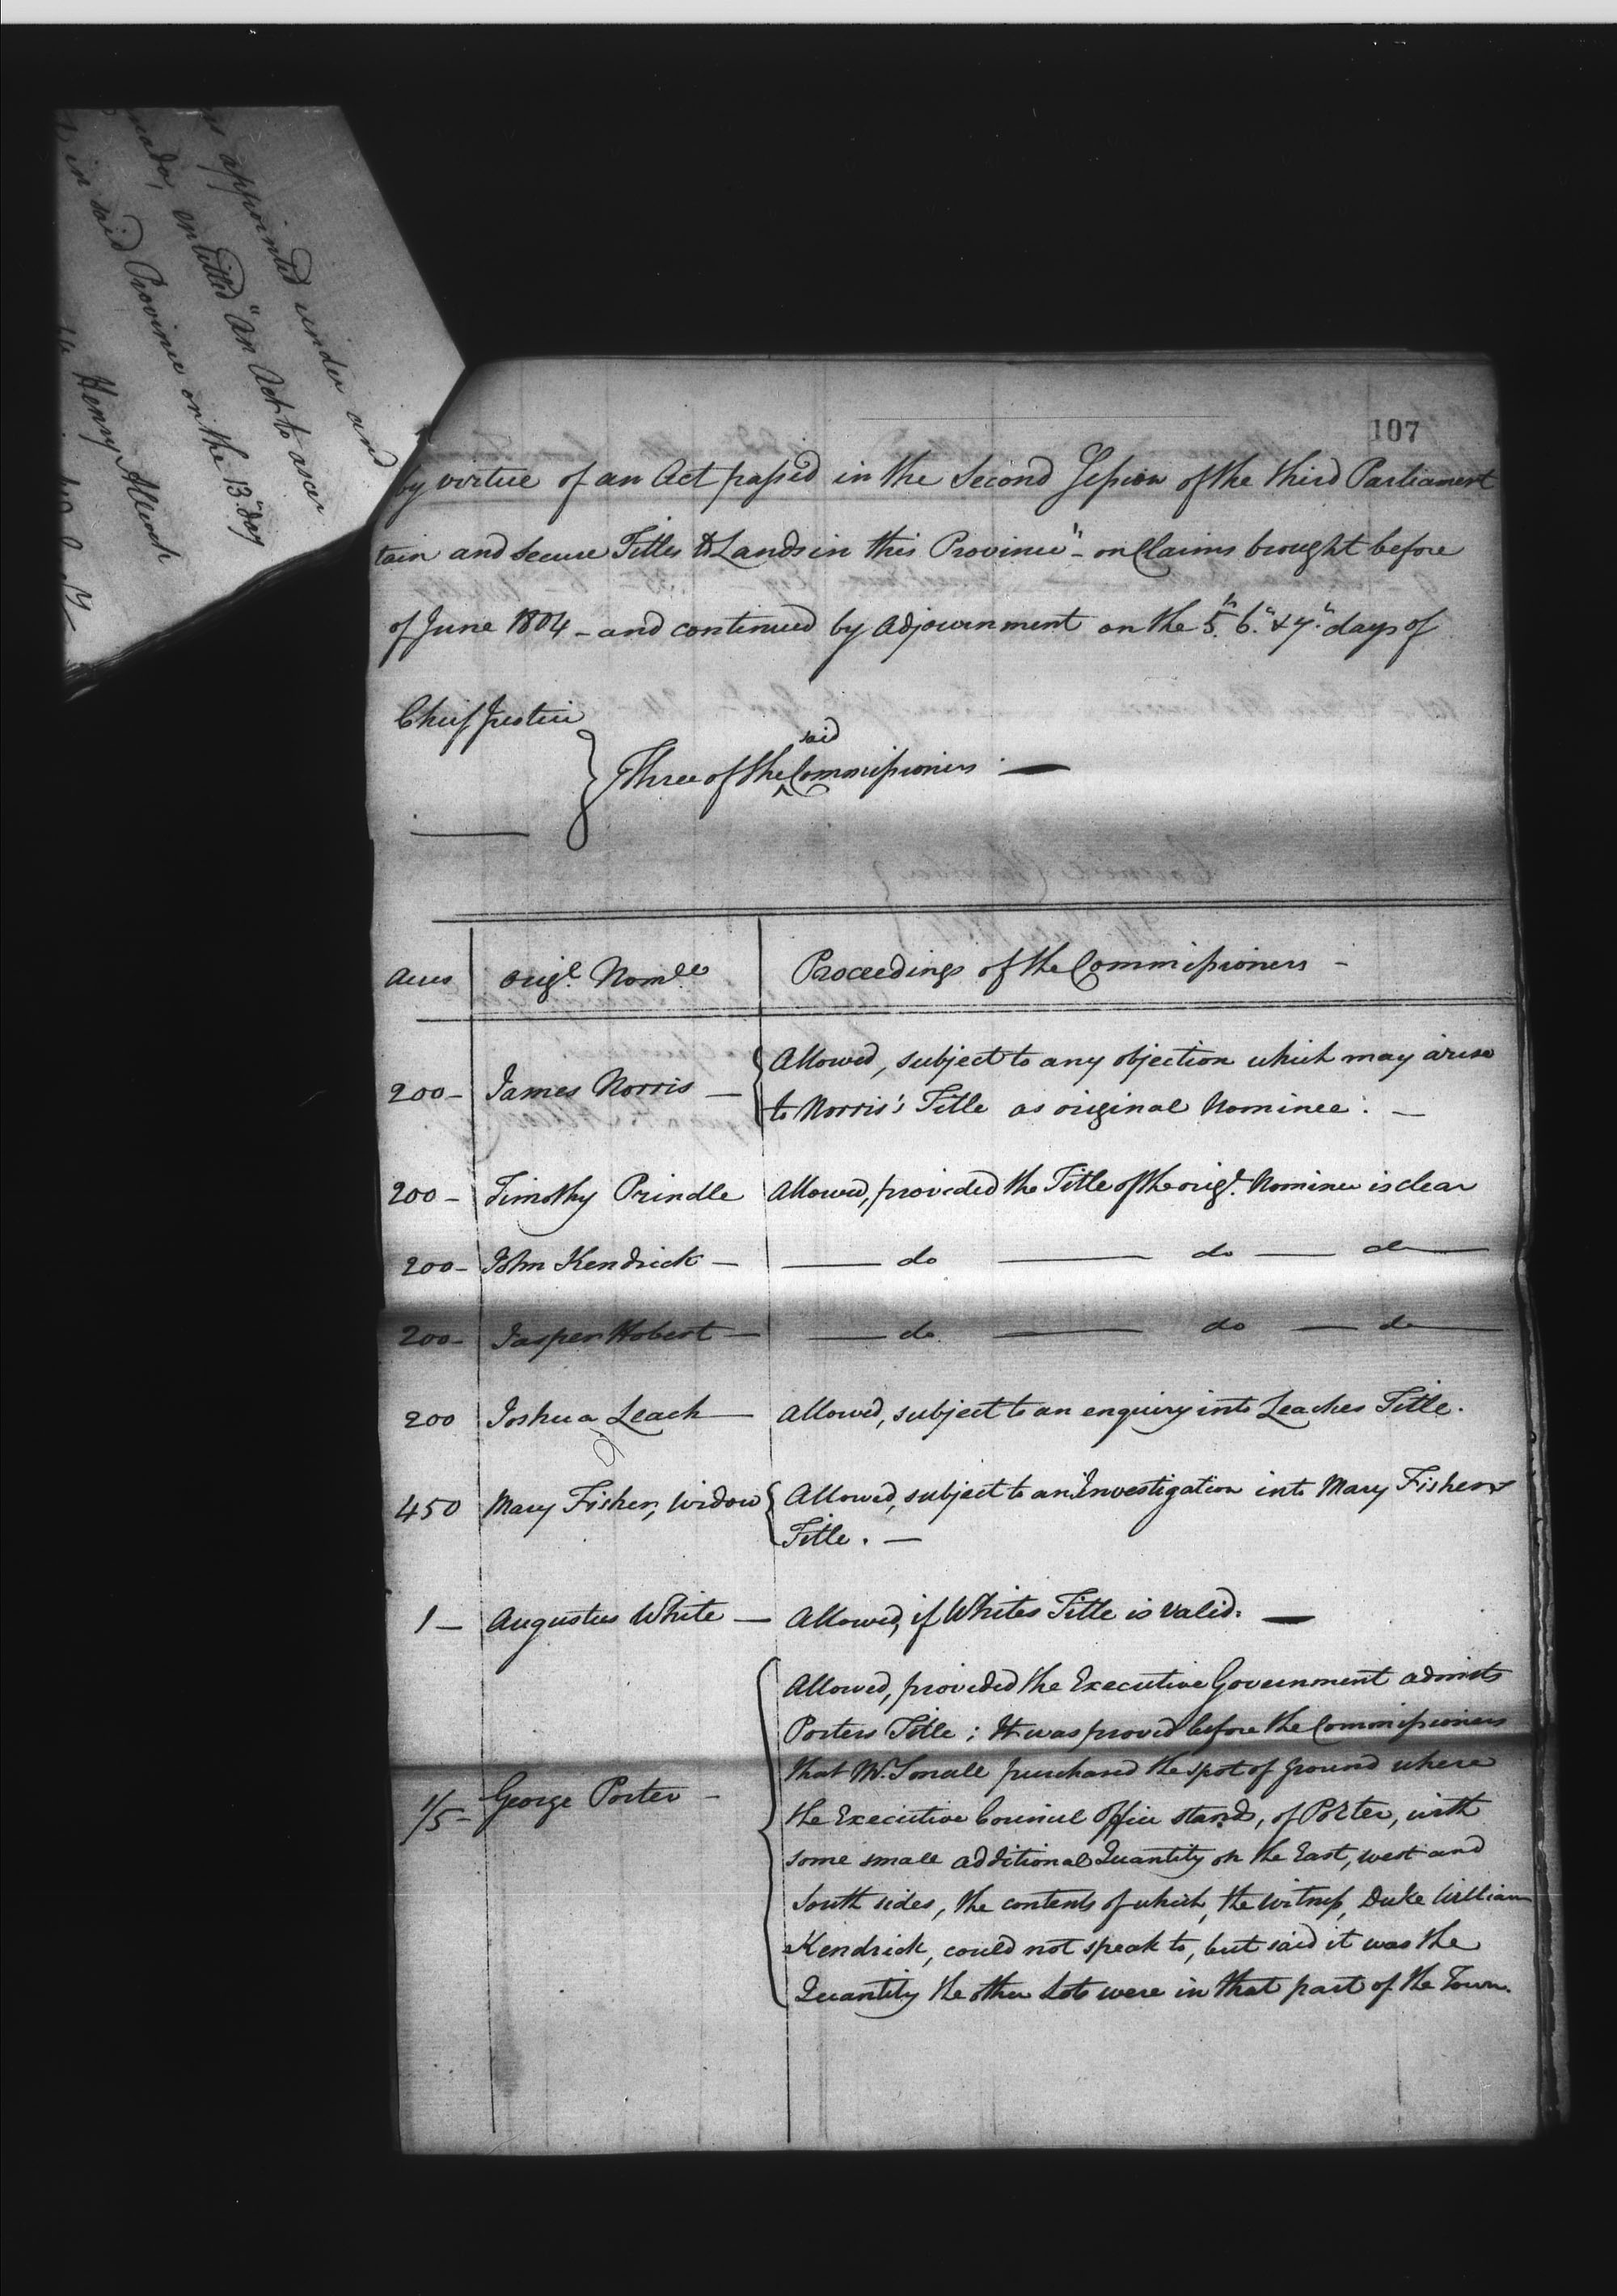 rs appointed under and
nada, entitled "An Act to ascer
in said Province on the 13th day
Henry Allcock
107
by virtue of an Act passed in the Second Session of the third Parliament
tain and secure Titles to Lands in this Province" - on Claims brought before
of June 1804 - and continued by Adjournment on the 5th 6th & 7th days of
Chief Justice
Three of the said Commissioners. —
Acres origl. Nomee. Proceedings of the Commissioners -
Allowed, subject to any objection which may arise
200 - James Norris — to Norris's Title as original Nominee. —
200 - Timothy Prindle Allowed, provided the Title of the origl. Nominee is clear
200 - John Kendrick — — do — do — do —
200 - Jasper Hobert — — do — do — do —
200 Joshua Leach — Allowed, subject to an enquiry into Leaches Title.
450 Mary Fisher, Widow Allowed, subject to an Investigation into Mary Fishers
Title. —
1 — Augustus White — Allowed, if Whites Title is valid. —
Allowed, provided the Executive Government admits
Porters Title; It was proved before the Commissioners
that Mr. Small purchased the spot of ground where
1/5 - George Porter - the Executive Council Office stands, of Porter, with
some small additional Quantity on the East, west and
South sides, the contents of which, the Witness, Duke William
Kendrick, could not speak to, but said it was the
Quantity the other Lots were in that part of the Town.